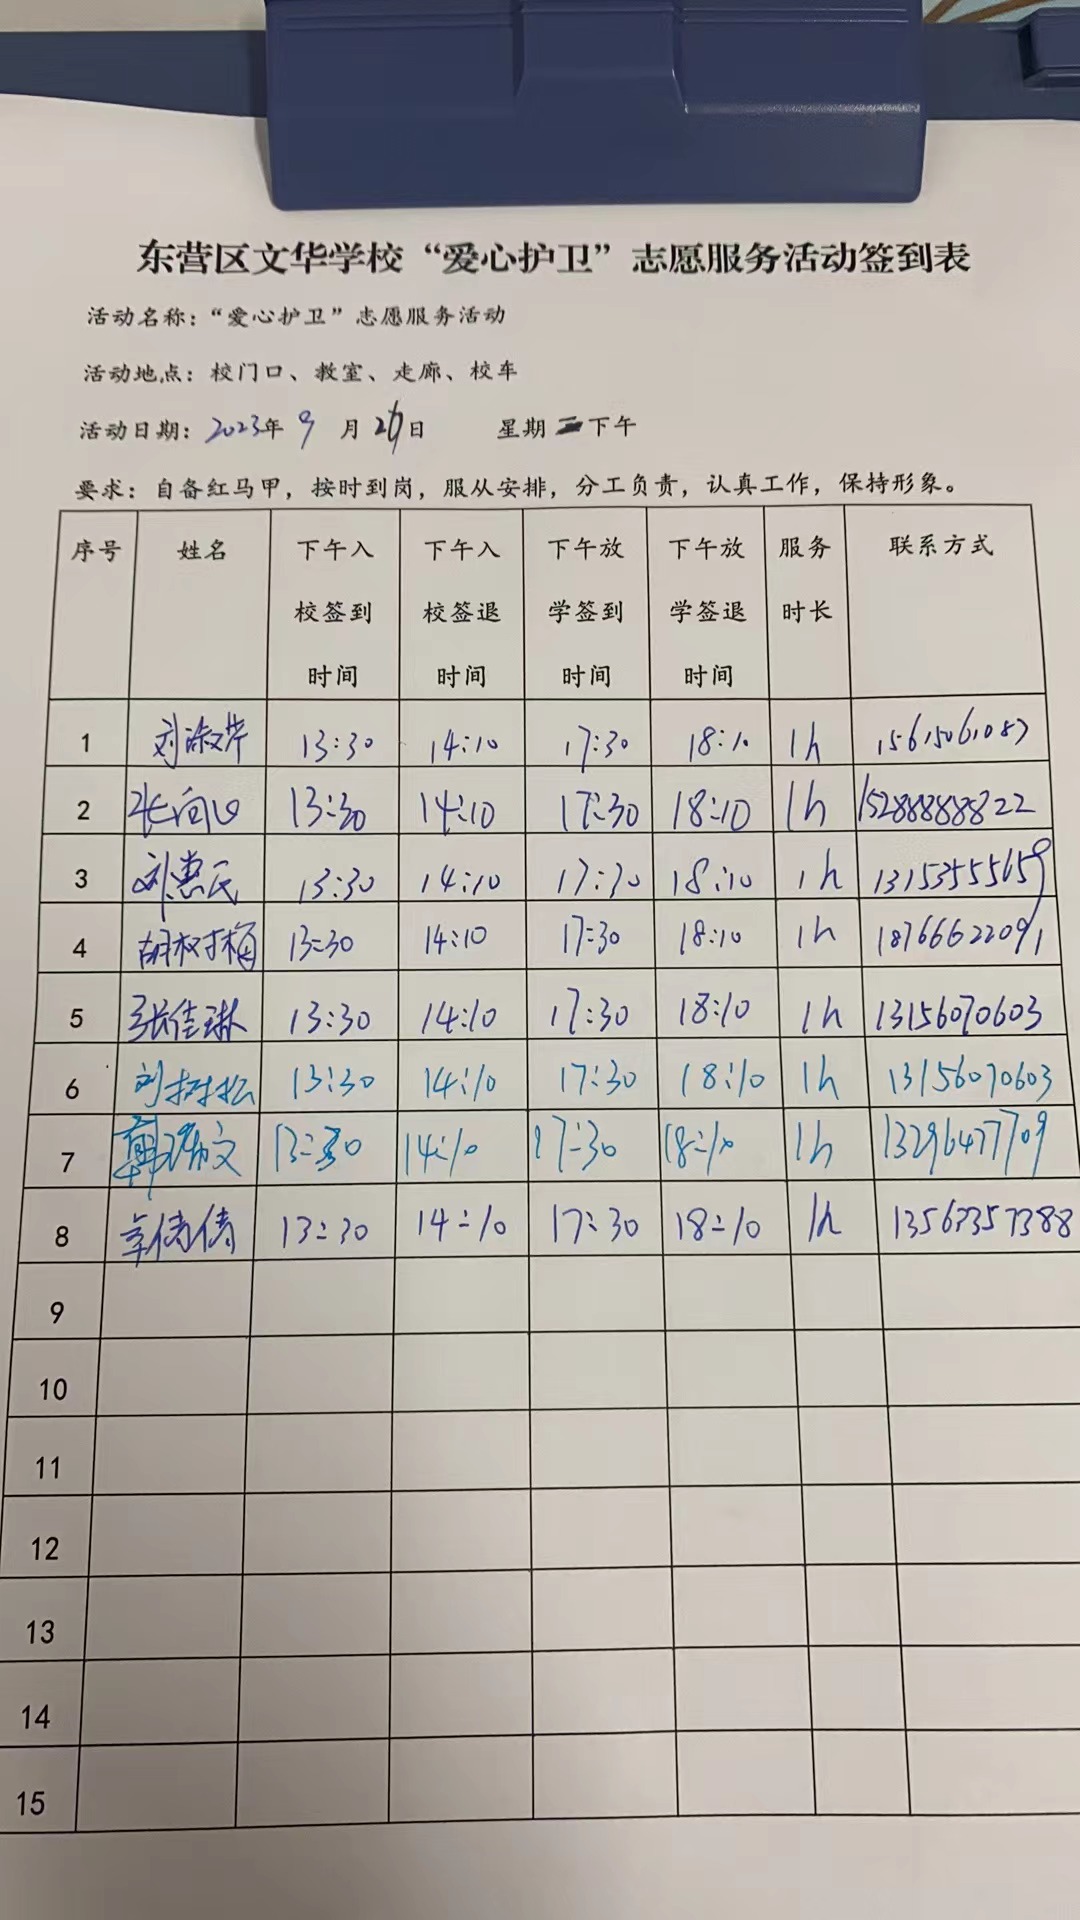 东营区文华学校“爱心护卫”志愿服务活动签到表
活动名称：“爱心护卫”志愿服务活动
活动地点：校门口、教室、走廊、校车
活动日期：2023年 9 月 26日 星期二下午
要求：自备红马甲，按时到岗，服从安排，分工负责，认真工作，保持形象。
序号 姓名 下午入校签到时间 下午入校签退时间 下午放学签到时间 下午放学签退时间 服务时长 联系方式
1 刘淑芹 13:30 14:10 17:30 18:10 1h 15615061087
2 张向心 13:30 14:10 17:30 18:10 1h 152888888322
3 刘惠民 13:30 14:10 17:30 18:10 1h 13153555659
4 胡树梅 13:30 14:10 17:30 18:10 1h 18766622091
5 张佳琳 13:30 14:10 17:30 18:10 1h 13156070603
6 刘树松 13:30 14:10 17:30 18:10 1h 13156070603
7 文 13:30 14:10 17:30 18:10 1h 13296477709
8 辛倩倩 13:30 14:10 17:30 18:10 1h 13567357388
9
10
11
12
13
14
15